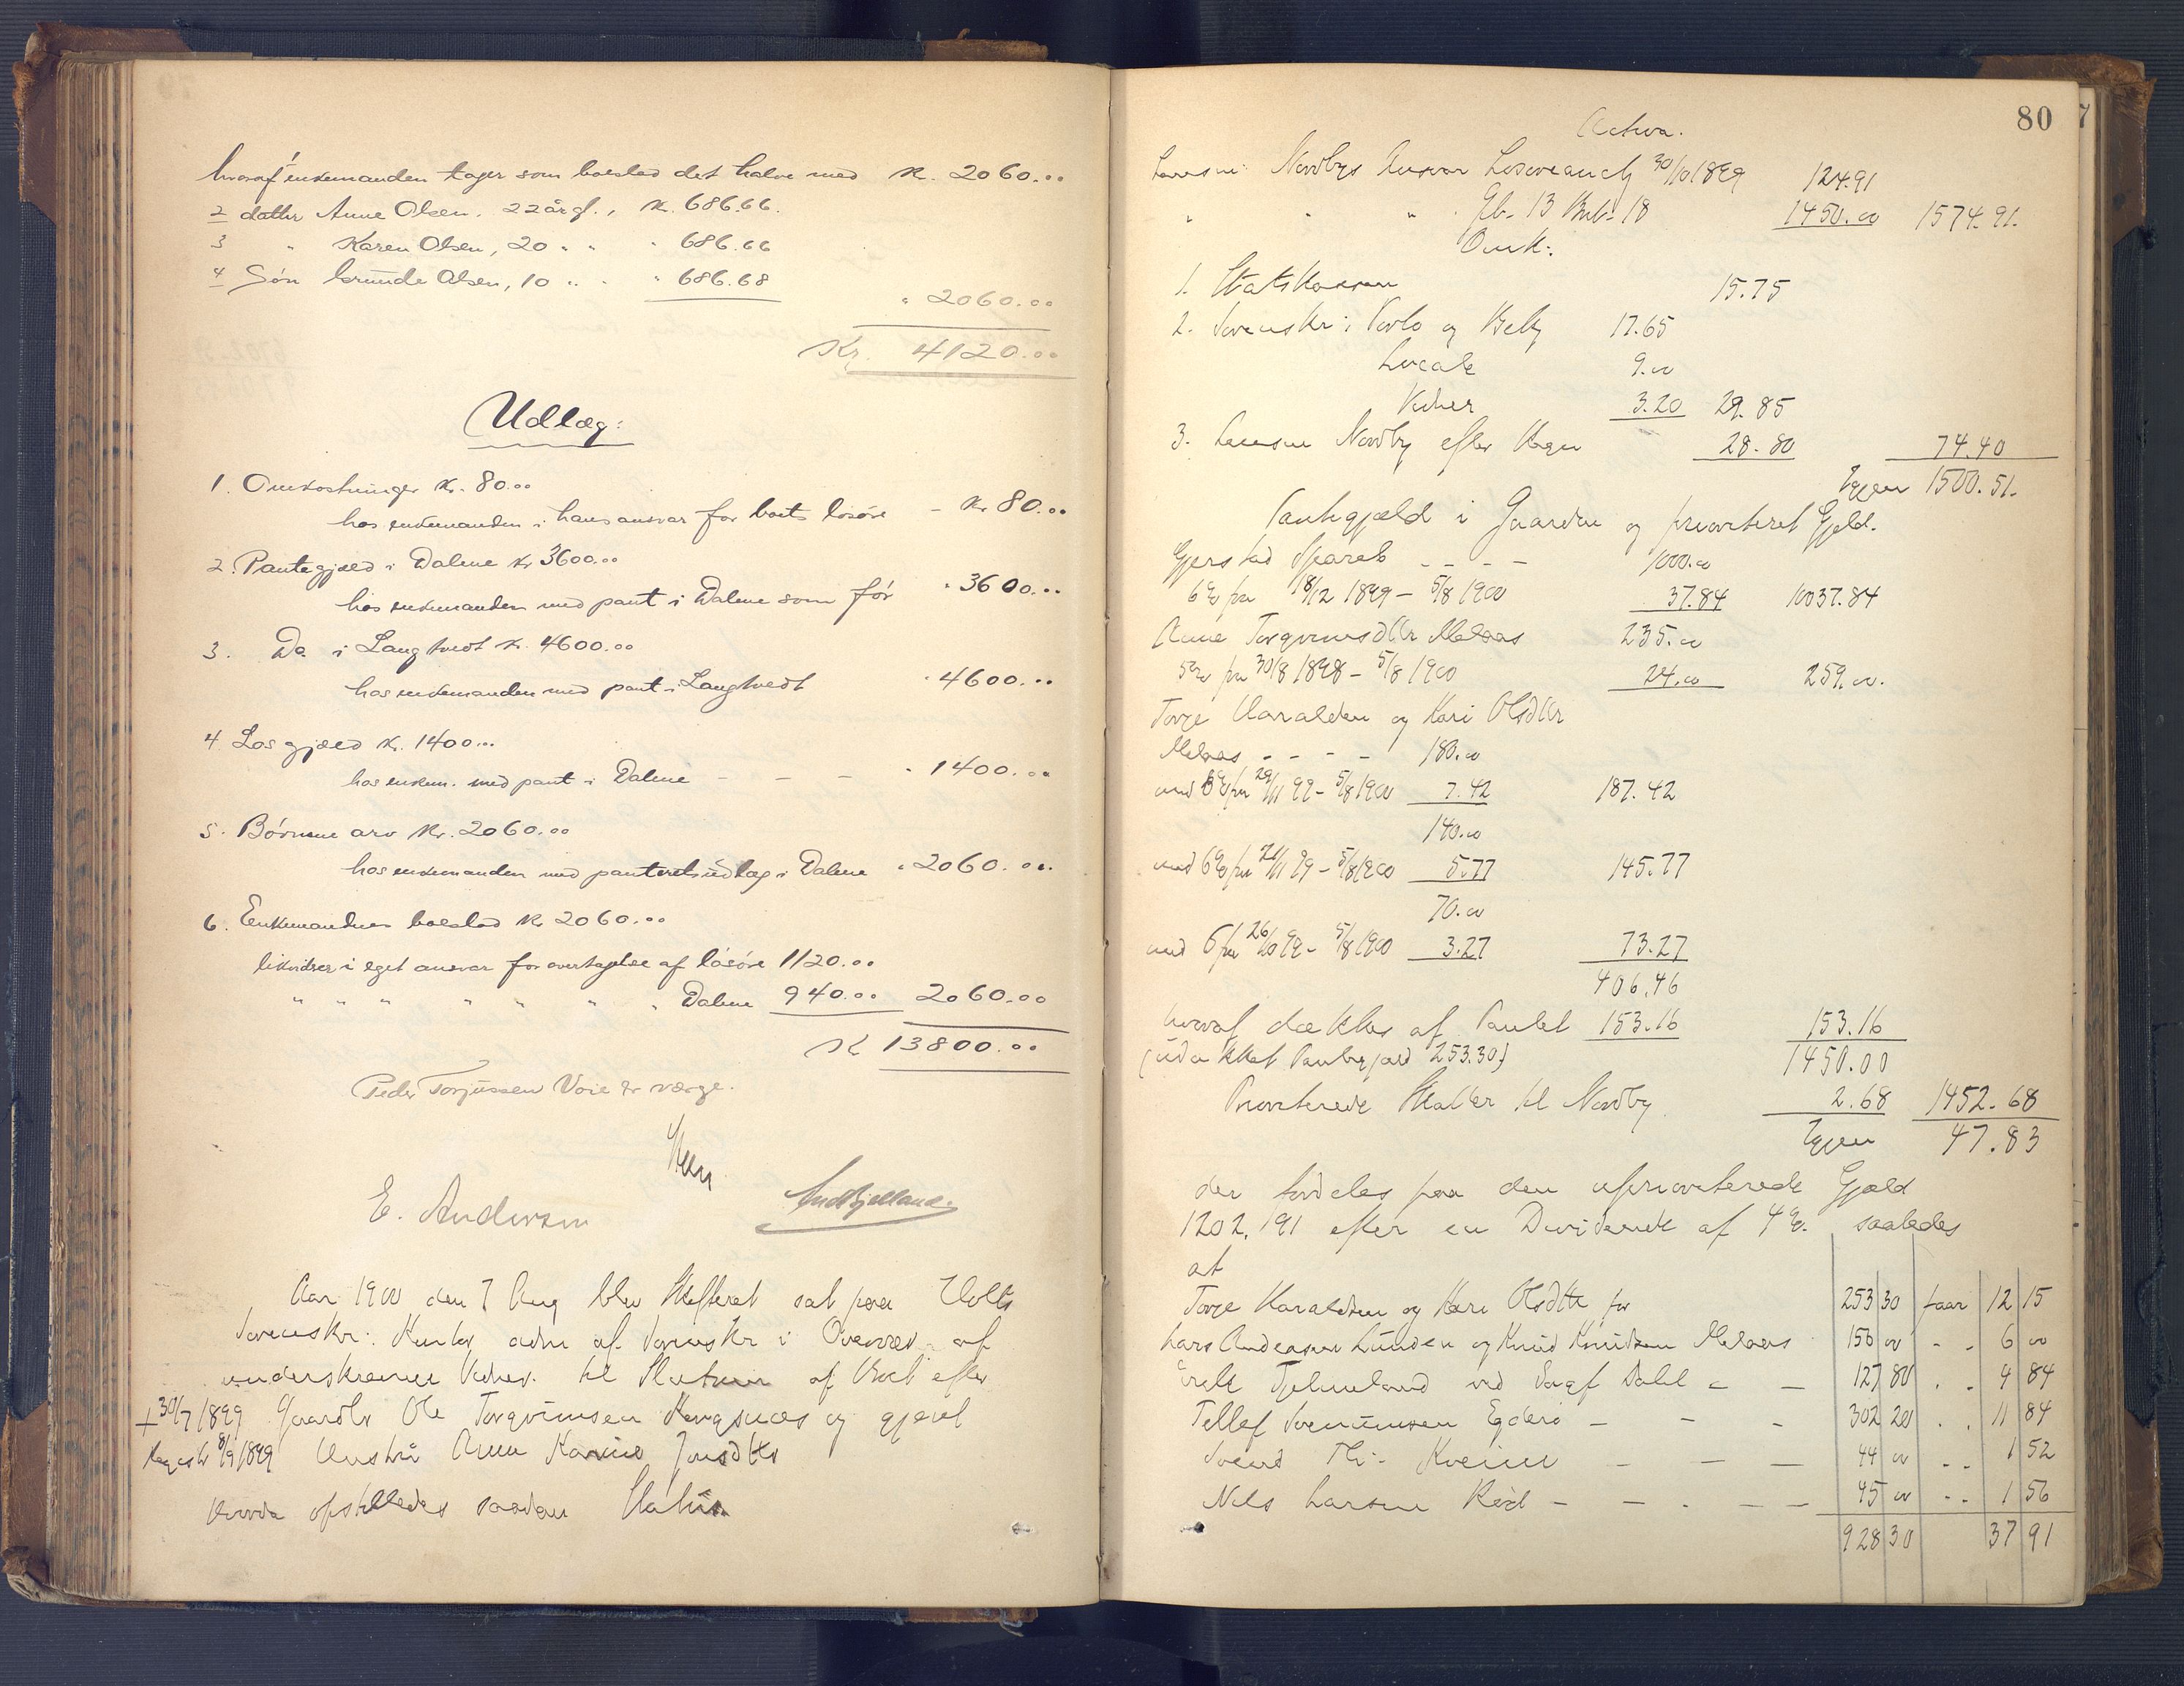 hvoraf enkemanden tager som boeslod det halve med Kr. 2060.00
2 datter Anne Olsen, 22 år gl., Kr. 686.66.
3 " Karen Olsen, 20 " " " 686.66
4 Søn Grunde Olsen, 10 " " " 686.68
" 2060.00
Kr. 4120.00
Udlæg:
1. Omkostninger Kr. 80.00
hos enkemanden i hans ansvar for boets løsøre - Kr 80.00
2. Pantegjæld i Dalene Kr 3600.00
hos enkemanden med pant i Dalene som før " 3600.00
3. Do i Langtvedt Kr. 4600.00
hos enkemanden med pant i Langtvedt " 4600.00
4. Løs gjæld Kr. 1400.00
hos enkem. med pant i Dalene - - - " 1400.00
5. Børnene arv Kr. 2060.00
hos enkemanden med panteretsudlæg i Dalene " 2060.00
6. Enkemandens boeslod Kr 2060.00
likvideres i eget ansvar for overtagelse af løsøre 1120.00
" " " " " " " Dalene 940.00 2060.00
Kr 13800.00
Peder Torjussen Voie er værge.
E. Andersen
Aar 1900 den 7 Aug blev Skifteret sat paa Holts
Sorenskr: Kontor adm af Sorenskr i Overvær af
underskrevne Vidner til Slutning af Boet efter
+ 30/7 1899 Gaardbr Ole Torgrimsen og gjenl
Regist 8/9 1899 Hustru Anne Karine Jonsdtr
Hvorda opstilledes saadan Status
80
Activa.
Lensm: Nordbys Ansvar Løsøreauct 30/10 1899 124.91
" " " Gb. 13 Bnb. 18 1450.00 1574.91.
Omk:
1. Statskassen 15.75
2. Sorenskr: Porto og Bek 17.65
Locale 9.00
Vidner 3.20 29.85
3. Lensm Nordby efter Regn 28.80 74.40
Igjen 1500.51.
Pantegjæld i Gaarden og prioriteret Gjæld.
Gjerstad Spareb - - - - 1000.00
6% fra 18/12 1899 - 5/8 1900 37.84 10037.84
Anne Torgrimsdtr Melaas 235.00
5% fra 30/8 1898 - 5/8 1900 24.00 259.00.
Torje Haraldsen og Kari Olsdtr
Melaas - - - - 180.00
med 6% fra 29/11 99 - 5/8 1900 7.42 187.42
140.00
med 6% fra 21/11 99 - 5/8 1900 5.77 145.77
70.00
med 6 fra 26/10 99 - 5/8 1900 3.27 73.27
406.46
hvoraf dækkes af Pantet 153.16 153.16
(udækket Pantegjæld 253.30) 1450.00
Prioriterede Skatter til Nordby 2.68 1452.68
Igjen 47.83
der fordeles paa den uprioriterede Gjæld
1202.191 efter en Dividende af 4%. saaledes
at
Torje Haraldsen og Kari Olsdtr for 253 30 faar 12 15
Lars Andersen Lunden og Knud Knudsen Melaas 150 00 - - 6 00
ved Sagf Dahl - - 127 80 " " 4 84
Tellef - - - 302 20 " " 11 84
- - - 44 00 " " 1 52
Nils Larsen Rød - - - - - 45 00 " " 1 56
928 30 37 91